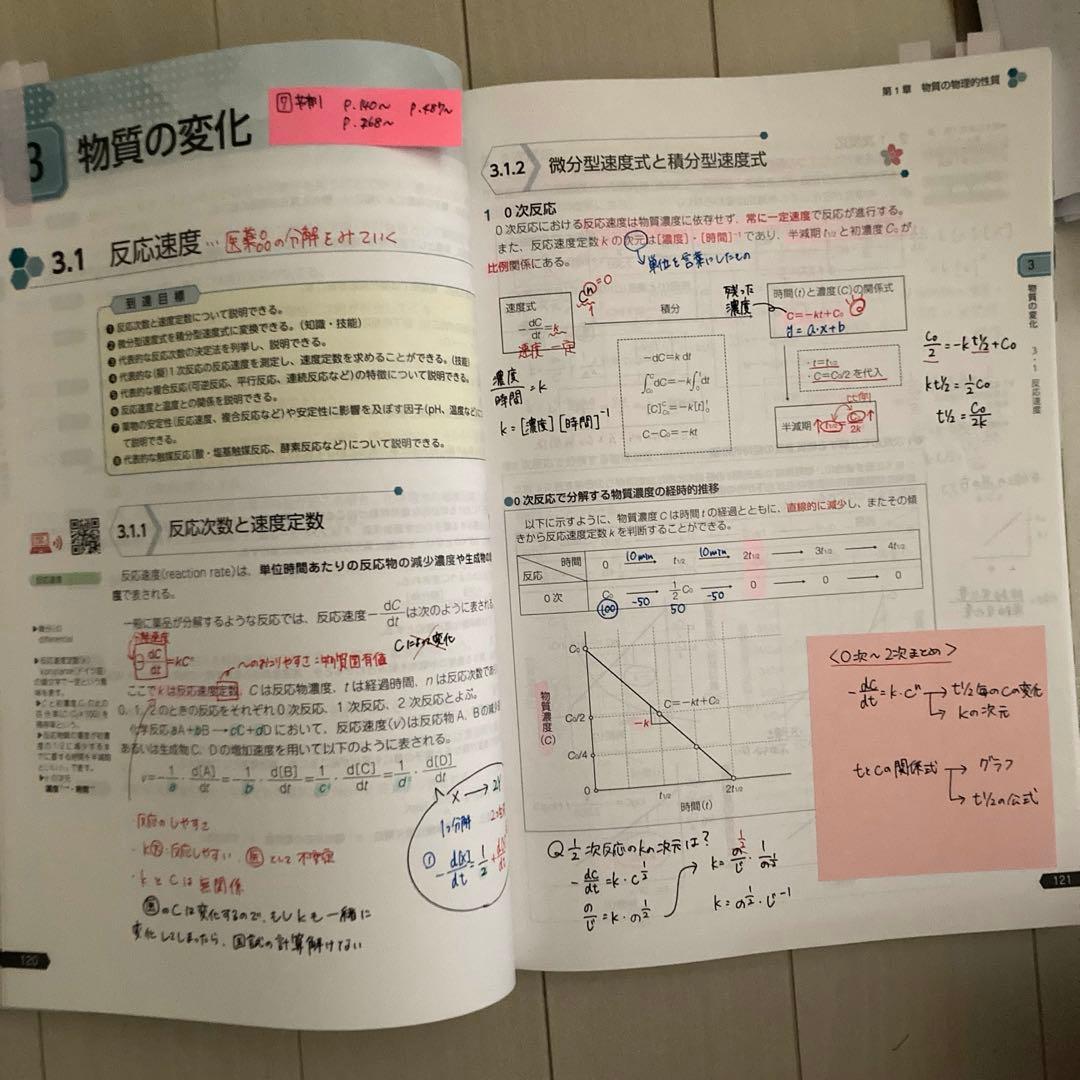 3 物質の変化
P.140〜 P.487〜
P.268〜
3.1 反応速度 …医薬品の分解をみていく
到達目標
❶反応次数と速度定数について説明できる。
❷微分型速度式を積分型速度式に変換できる。(知識・技能)
❸代表的な反応次数の決定法を列挙し、説明できる。
❹代表的な(擬)1次反応の反応速度を測定し、速度定数を求めることができる。(技能)
❺代表的な複合反応(可逆反応、平行反応、連続反応など)の特徴について説明できる。
❻反応速度と温度との関係を説明できる。
❼薬物の安定性(反応速度、複合反応など)や安定性に影響を及ぼす因子(pH、温度など)に
て説明できる。
❽代表的な触媒反応(酸・塩基触媒反応、酵素反応など)について説明できる。
3.1.1 反応次数と速度定数
反応速度
反応速度(reaction rate)は、単位時間あたりの反応物の減少濃度や生成物の
度で表される。
一般に薬品が分解するような反応では、反応速度−dC/dtは次のように表される
▶微分の
differential
Cによって変化
−dC/dt=kCⁿ
〜のおこりやすさ=物質固有値
ここでkは反応速度定数、Cは反応物濃度、tは経過時間、nは反応次数であ
0、1、2のときの反応をそれぞれ0次反応、1次反応、2次反応とよぶ。
化学反応aA+bB→cC+dDにおいて、反応速度(v)は反応物A、Bの減少
あるいは生成物C、Dの増加速度を用いて以下のように表される。
v=−1/a・d[A]/dt=−1/b・d[B]/dt=1/c・d[C]/dt=1/d・d[D]/dt
X→2Y
・反応のしやすさ
・k大:反応しやすい、として不安定
・kとCは無関係
のCは変化するので、もしkも一緒に
変化してしまったら、国試の計算解けない
120
第1章 物質の物理的性質
3.1.2 微分型速度式と積分型速度式
1 0次反応
0次反応における反応速度は物質濃度に依存せず、常に一定速度で反応が進行する。
また、反応速度定数kの次元は[濃度]・[時間]⁻¹であり、半減期t1/2と初濃度C₀が
比例関係にある。
単位を言葉にしたもの
Cⁿ=0
速度式
−dC/dt=k
速度一定
積分
残った
濃度
時間(t)と濃度(C)の関係式
C=−kt+C₀
y=a・x+b
−dC=k dt
∫dC=−k∫dt
[C]=−k[t]
C−C₀=−kt
・t=t1/2
・C=C₀/2を代入
比例
半減期 t1/2=C₀/2k
濃度/時間=k
k=[濃度][時間]⁻¹
C₀/2=−kt1/2+C₀
kt1/2=1/2C₀
t1/2=C₀/2k
3
物質の変化
3・1 反応速度
●0次反応で分解する物質濃度の経時的推移
以下に示すように、物質濃度Cは時間tの経過とともに、直線的に減少し、またその傾
きから反応速度定数kを判断することができる。
時間 0 10min t1/2 10min 2t1/2 → 3t1/2 → 4t1/2
反応
0次 C₀ → 1/2C₀ → 0 → 0 → 0
100 −50 50 −50
物質濃度(C)
C₀
C₀/2
C₀/4
0
−k
C=−kt+C₀
t1/2 2t1/2
時間(t)
<0次〜2次まとめ>
−dC/dt=k・Cⁿ → t1/2毎のCの変化
→ kの次元
tとCの関係式 → グラフ
→ t1/2の公式
Q 1/2次反応のkの次元は?
−dC/dt=k・C^1/2
121